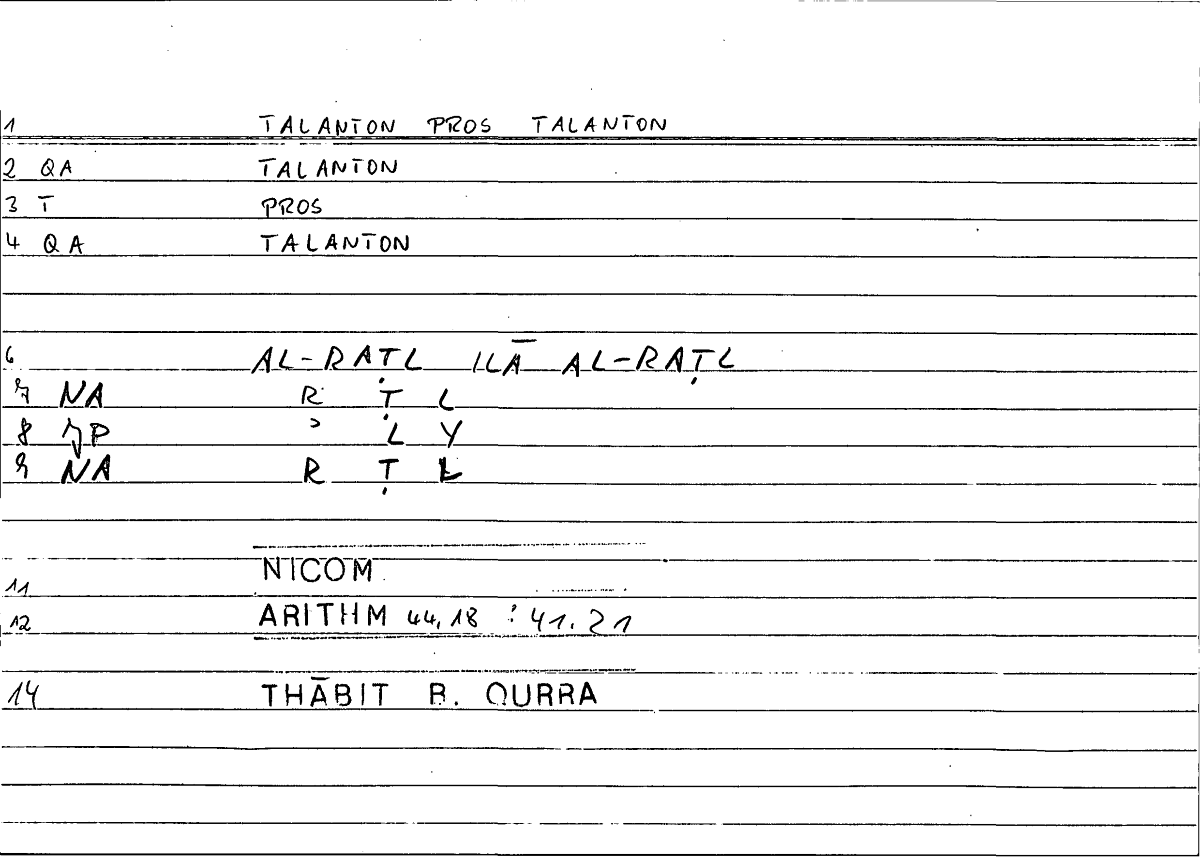 1 TALANTON PROS TALANTON
2 QA TALANTON
3 T PROS
4 QA TALANTON
6 AL-RAṬL ILĀ AL-RAṬL
7 NA R Ṭ L
8 P ʾ L Y
9 NA R Ṭ L
11 NICOM
12 ARITHM 44,18 : 41.21
14 THĀBIT B. QURRA